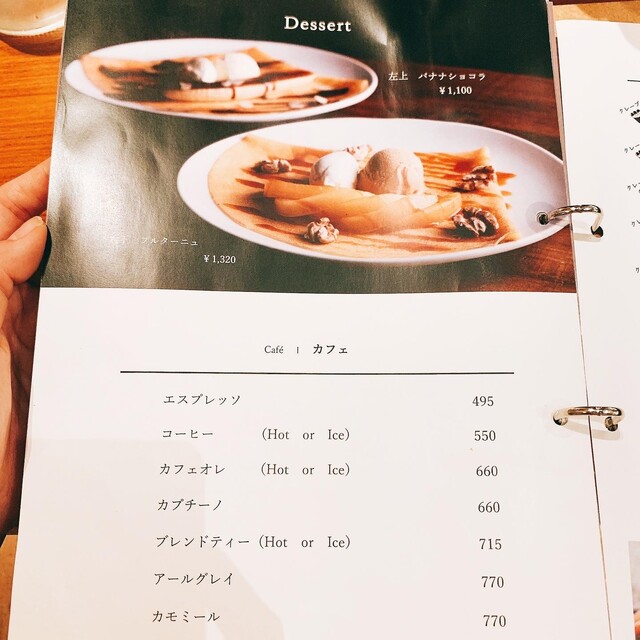 Dessert
左上 バナナショコラ
¥1,100
ルターニュ
¥1,320
Café | カフェ
エスプレッソ 495
コーヒー (Hot or Ice) 550
カフェオレ (Hot or Ice) 660
カプチーノ 660
ブレンドティー (Hot or Ice) 715
アールグレイ 770
カモミール 770
クレープ